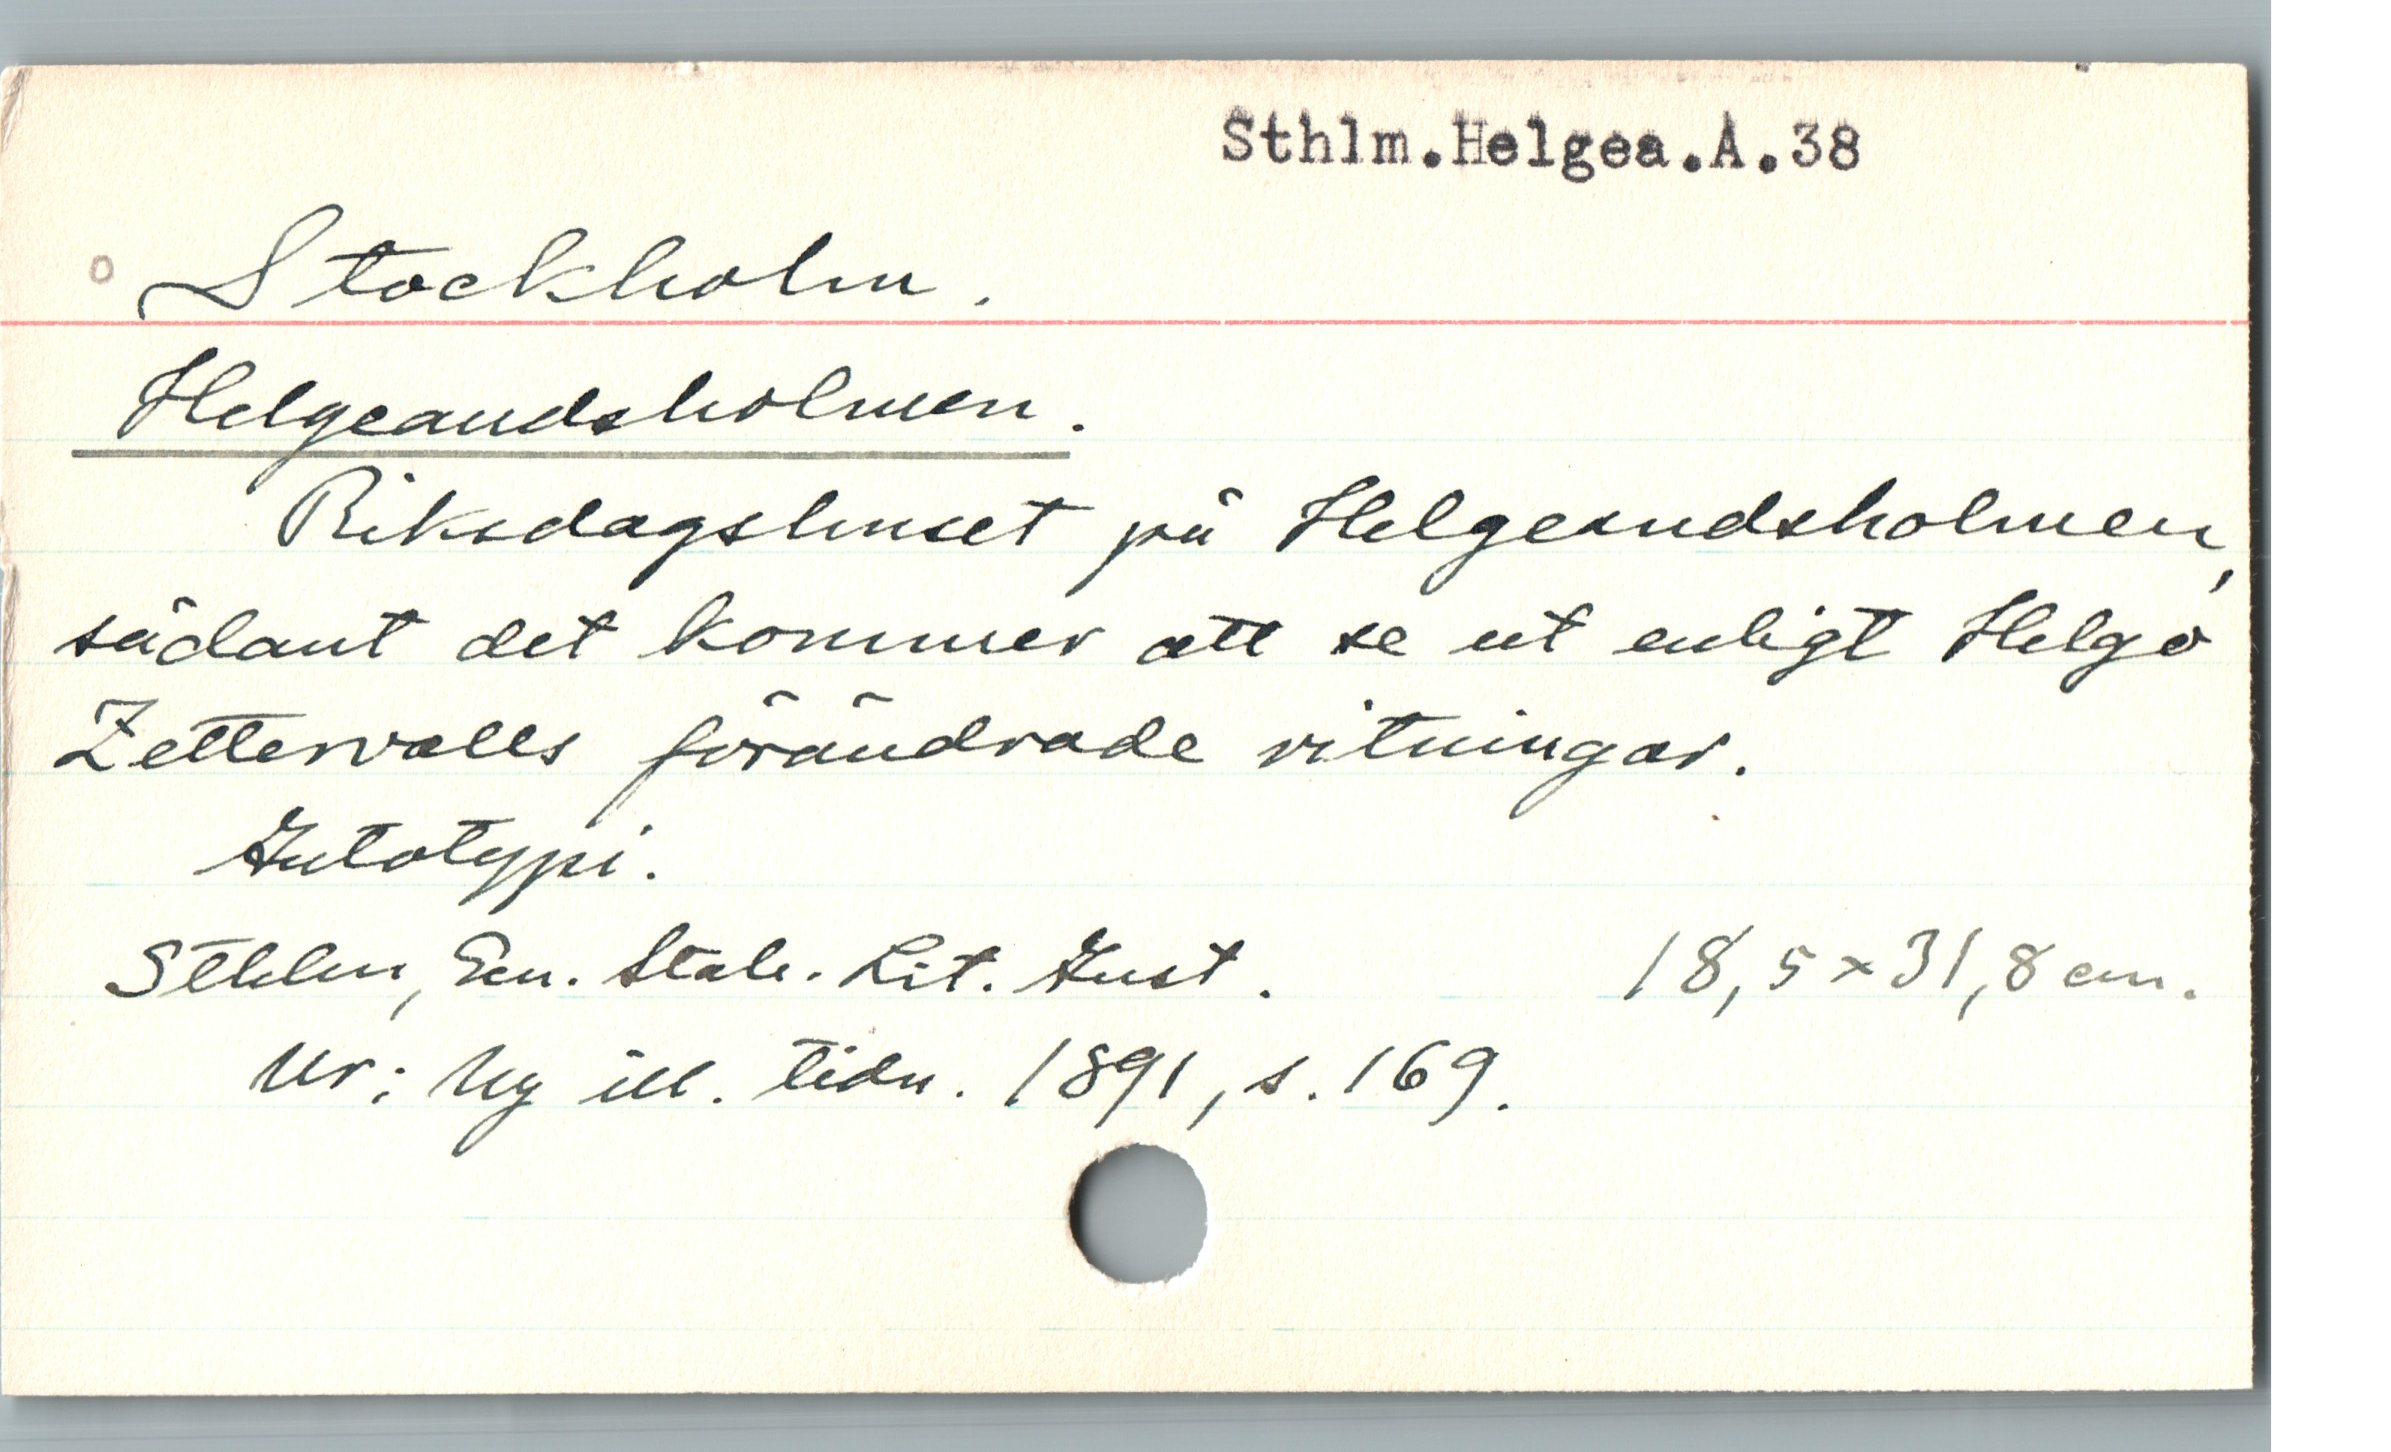 Sthlm.Helgea.A.38
Stockholm.
Helgeandsholmen.
Riksdagshuset på Helgeandsholmen,
sådant det kommer att se ut enligt Helgo
Zettervalls förändrade ritningar.
Autotypi.
Sthlm, Gen. Stab. Lit. Anst. 18,5 x 31,8 cm.
Ur: Ny ill. tidn. 1891, s. 169.